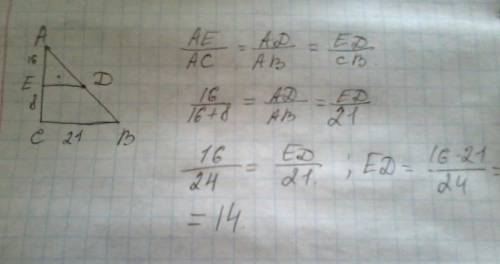 A
16
E D
8
C 21 B
AE/AC = AD/AB = ED/CB
16/16+8 = AD/AB = ED/21
16/24 = ED/21 ; ED = 16·21/24 =
= 14